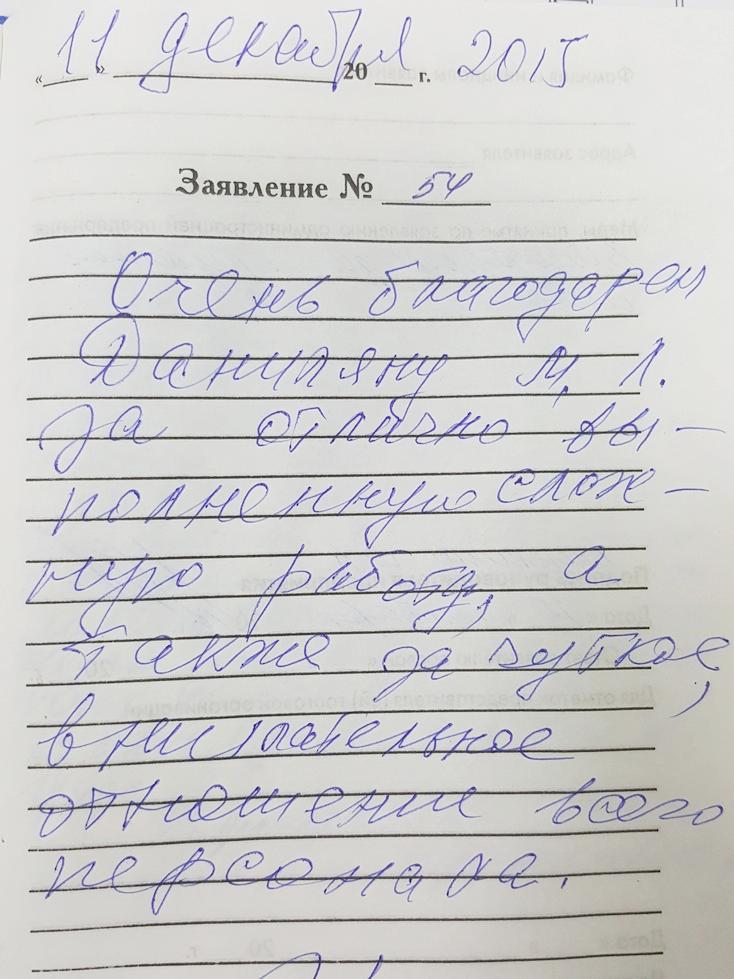 « 11 » декабря 20 г. 2015
Заявление № 54
Очень благодарен
Даниляну М. Л.
за отлично вы-
полненную слож-
ную работу, а
также за чуткое,
внимательное
отношение всего
персонала.